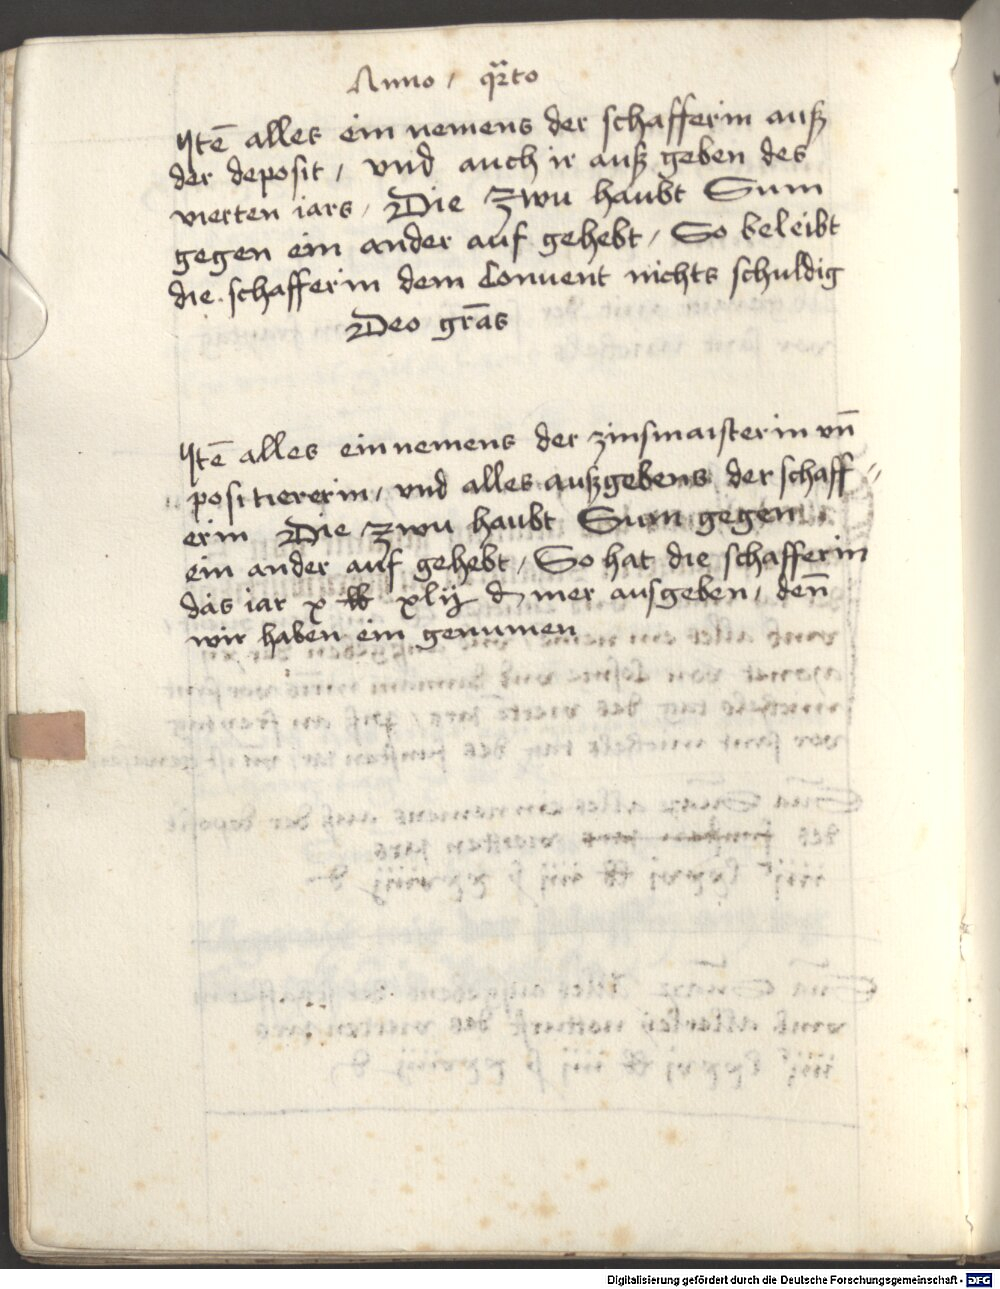 Anno / qr̄to
Itē alles ein nemens der schafferin auß
der deposit / vnd auch ir auß geben des
vierten iars / Die zwu haubt Sum
gegen ein ander auf gehebt / So beleibt
die schafferin dem Convent nichts schuldig
Deo gr̄as
Itē alles einnemens der zinsmaisterin vn̄
positiererin / vnd alles außgebens der schaff-
erin Die zwu haubt Sum gegen
ein ander auf gehebt / So hat die schafferin
das iar x lb xlij d mer ausgeben / den̄
wir haben ein genumen
Digitalisierung gefördert durch die Deutsche Forschungsgemeinschaft - DFG